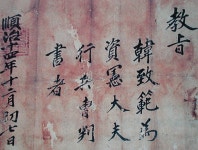 教旨
韓致範爲
資憲大夫
行兵曹判
書者
順治十四年十二月初七日